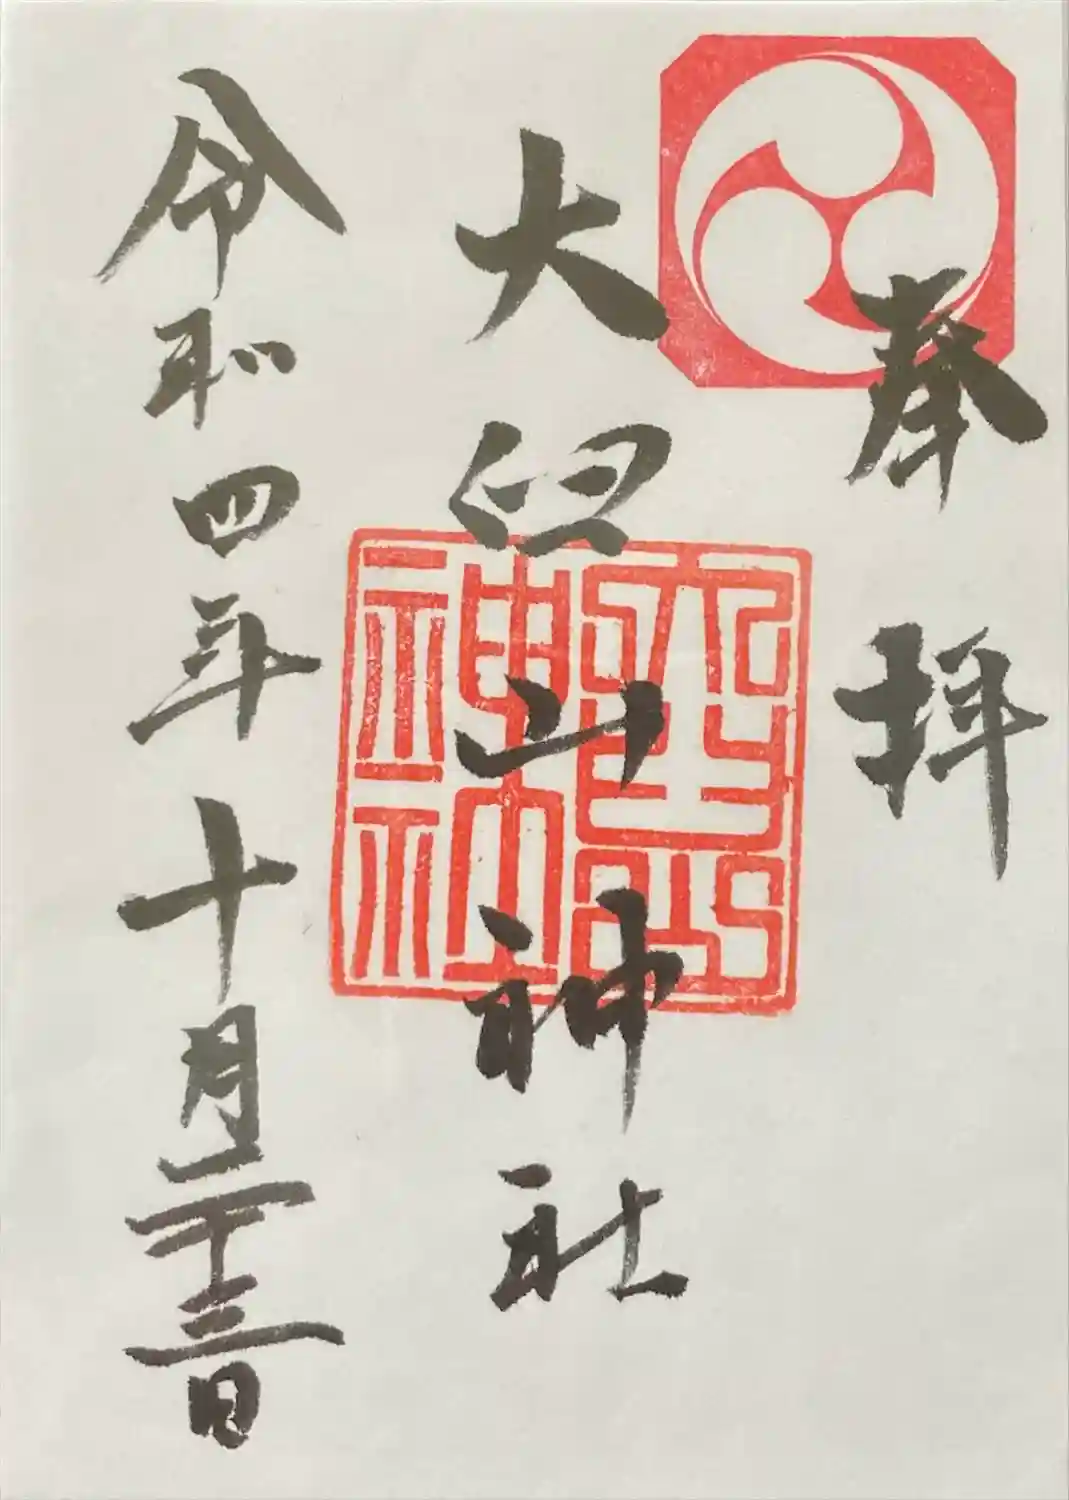 奉拝
大臼山神社
令和四年十月二十三日
大臼山神社